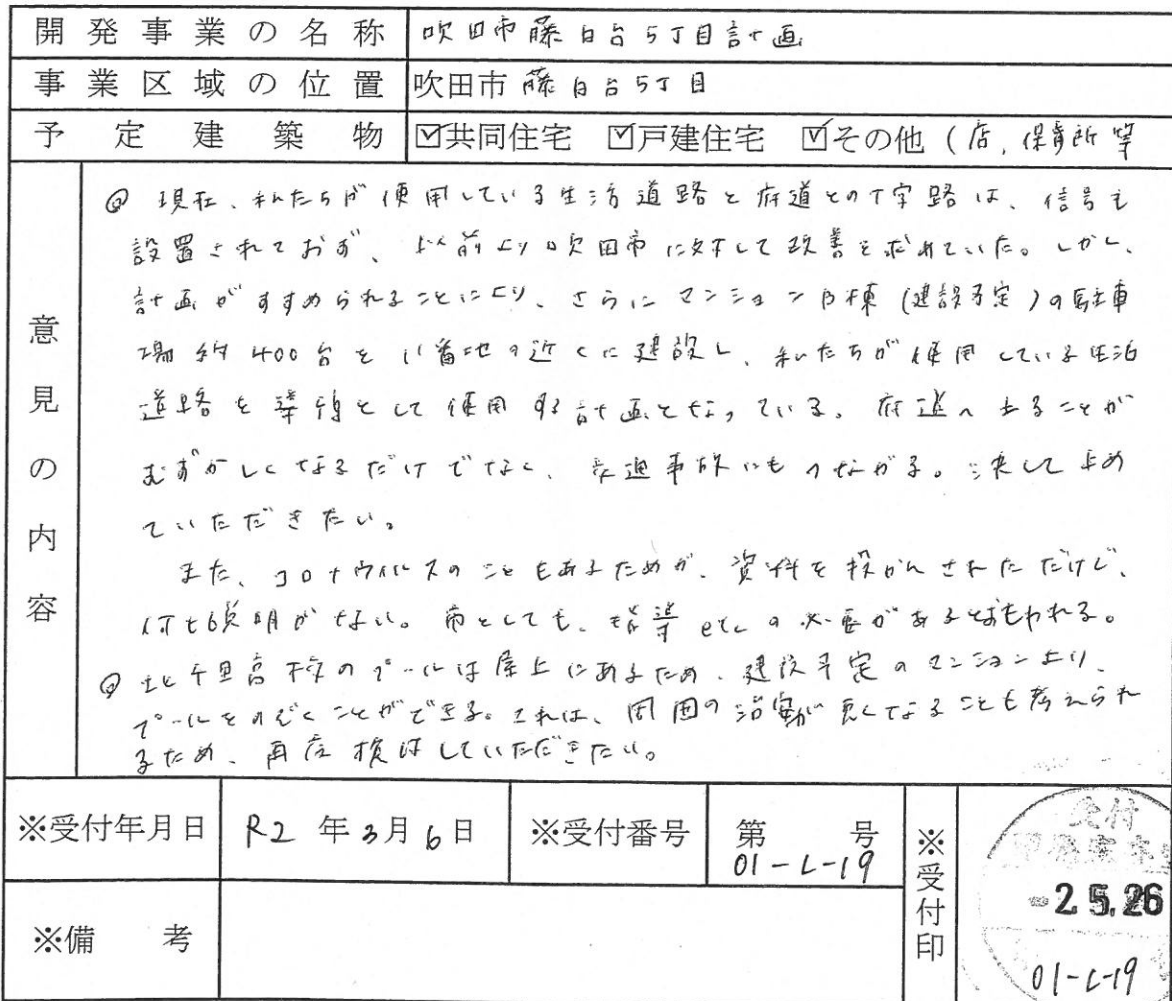 開発事業の名称 吹田市藤白台5丁目計画
事業区域の位置 吹田市藤白台5丁目
予定建築物 ☑共同住宅 ☑戸建住宅 ☑その他（店、保育所等
意見の内容
現在、私たちが使用している生活道路と府道とのT字路は、信号も
設置されておず、以前より吹田市に対して改善を求めていた。しかし、
計画がすすめられることにより、さらにマンションB棟(建設予定)の駐車
場約400台を11番地の近くに建設し、私たちが使用している生活
道路を導線として使用する計画となっている。府道へ出ることが
むずかしくなるだけでなく、交通事故にもつながる。決して止め
ていただきたい。
また、コロナウイルスのこともあるためが、資料を投かんされただけで、
何も説明がない。市としても、指導etcの必要があるとおもわれる。
北千里高校のプールは屋上にあるため、建設予定のマンションより、
プールをのぞくことができる。これは、周囲の治安が悪くなることも考えられ
るため、再度検討していただきたい。
※受付年月日 R2年3月6日 ※受付番号 第 号
01-L-19
※受付印
受付
-2.5.26
01-L-19
※備考